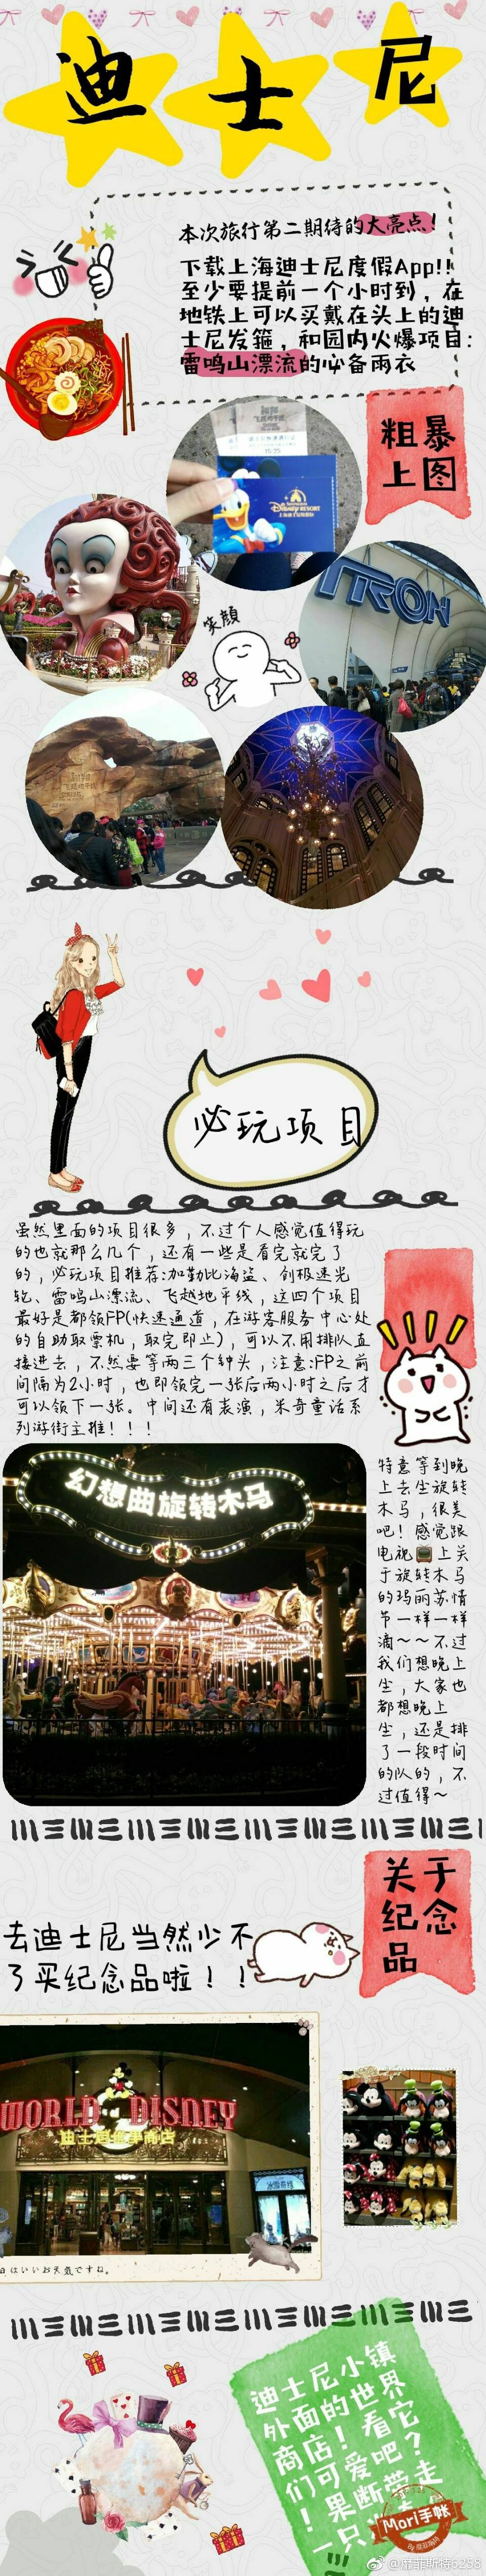 迪士尼
本次旅行第二期待的大亮点!
下载上海迪士尼度假App!!
至少要提前一个小时到，在
地铁上可以买戴在头上的迪
士尼发箍，和园内火爆项目:
雷鸣山漂流的必备雨衣
粗暴
上图
15:25
Disney RESORT
笑顔
TRON
必玩项目
虽然里面的项目很多，不过个人感觉值得玩
的也就那么几个，还有一些是看完就完了
的，必玩项目推荐:加勒比海盗、创极速光
轮、雷鸣山漂流、飞越地平线，这四个项目
最好是都领FP(快速通道，在游客服务中心处
的自助取票机，取完即止)，可以不用排队直
接进去，不然要等两三个钟头，注意:FP之前
间隔为2小时，也即领完一张后两小时之后才
可以领下一张。中间还有表演，米奇童话系
列游街主推！！！
幻想曲旋转木马
特意等到晚
上去坐旋转
木马，很美
吧！感觉跟
电视📺上关
于旋转木马
的玛丽苏情
节一样一样
滴～～不过
我们想晚上
坐，大家也
都想晚上
坐，还是排
了一段时间
的队的，不
过值得～
关于
纪念
品
去迪士尼当然少不
了买纪念品啦！！
WORLD OF DISNEY
迪士尼世界商店
冰雪奇缘
日はいいお天気ですね。
迪士尼小镇
外面的世界
商店！看它
们可爱吧？
！果断带走
一只
Mori手帐